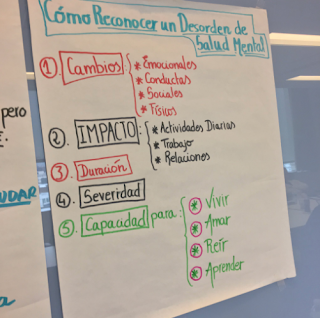 Cómo Reconocer un Desorden de
Salud Mental
1). Cambios
* Emocionales
* Conductas
* Sociales
* Físicos
2). IMPACTO:
* Actividades Diarias
* Trabajo
* Relaciones
3). Duración
4). Severidad
5). Capacidad para:
* Vivir
* Amar
* Reír
* Aprender
pero
UDAR
a